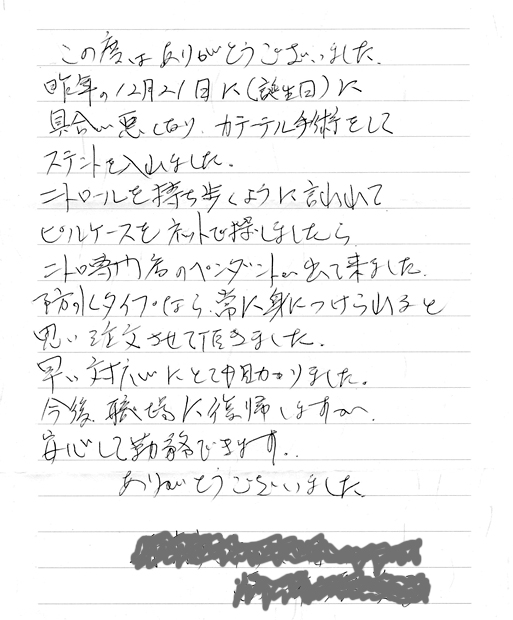 この度はありがとうございました.
昨年の12月21日に(誕生日)に
具合が悪くなり、カテーテル手術をして
ステントを入れました.
ニトロールを持ち歩くように言われて
ピルケースをネットで探しましたら
ニトロ専門店のペンダントが出て来ました.
予防くタイプなら、常に身につけられると
思い注文させて頂きました.
早い対応にとても助かりました.
今後、職場に復帰しますが、
安心して勤務できます..
ありがとうございました